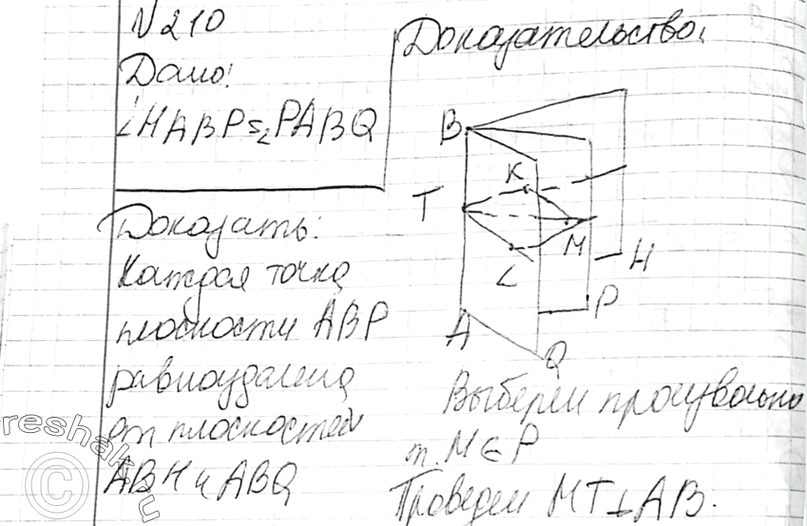 N 210
Дано:
∠HABP=∠PABQ
Доказать:
Каждая точка
плоскости ABP
равноудалена
от плоскостей
ABH и ABQ
Доказательство:
B
K
T
M
L
H
P
A
Q
Выберем произвольно
т. M∈P
Проведем MT⊥AB.
reshak.ru